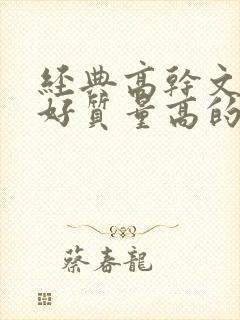 經典高幹文
好質量高的
蔡春龍